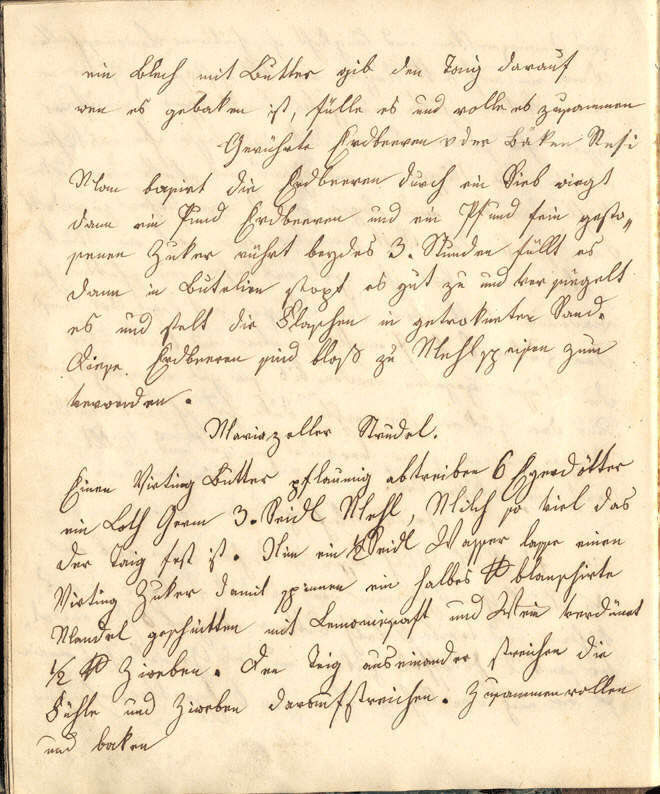 ein Blech mit Butter gib den Taig darauf
wen es gebaken ist, fülle es und rolle es zusammen
Gerührte Erdbeeren oder Bäken Resi
Man basirt die Erdbeeren durch ein Sieb wiegt
dann ein Pfund Erdbeeren und ein Pfund fein gesto„
ssenen Zuker rührt beydes 3. Stunden füllt es
dann in Butelien stopf es gut zu und versiegelt
es und stelt die Flaschen in getrokneter Sand.
Diese Erdbeeren sind bloß zu Mehlspeisen zum
verwenden.
Mariazeller Strudel.
Einen Virting Butter pflaumig abtreiben 6 Eyerdötter
ein Loth Germ 3. Seidl Mehl, Milch so viel das
der Taig fest ist. Nim ein ½ Seidl Wasser lasse einen
Virting Zuker damit spinnen ein halbes ℔ blanschirte
Mandel geschnitten mit Lemonissaft und Wein verdünt
½ ℔ Ziweben. Den Teig auseinander streichen die
Fühle und Ziweben daraufstreichen. Zusammenrollen
und baken